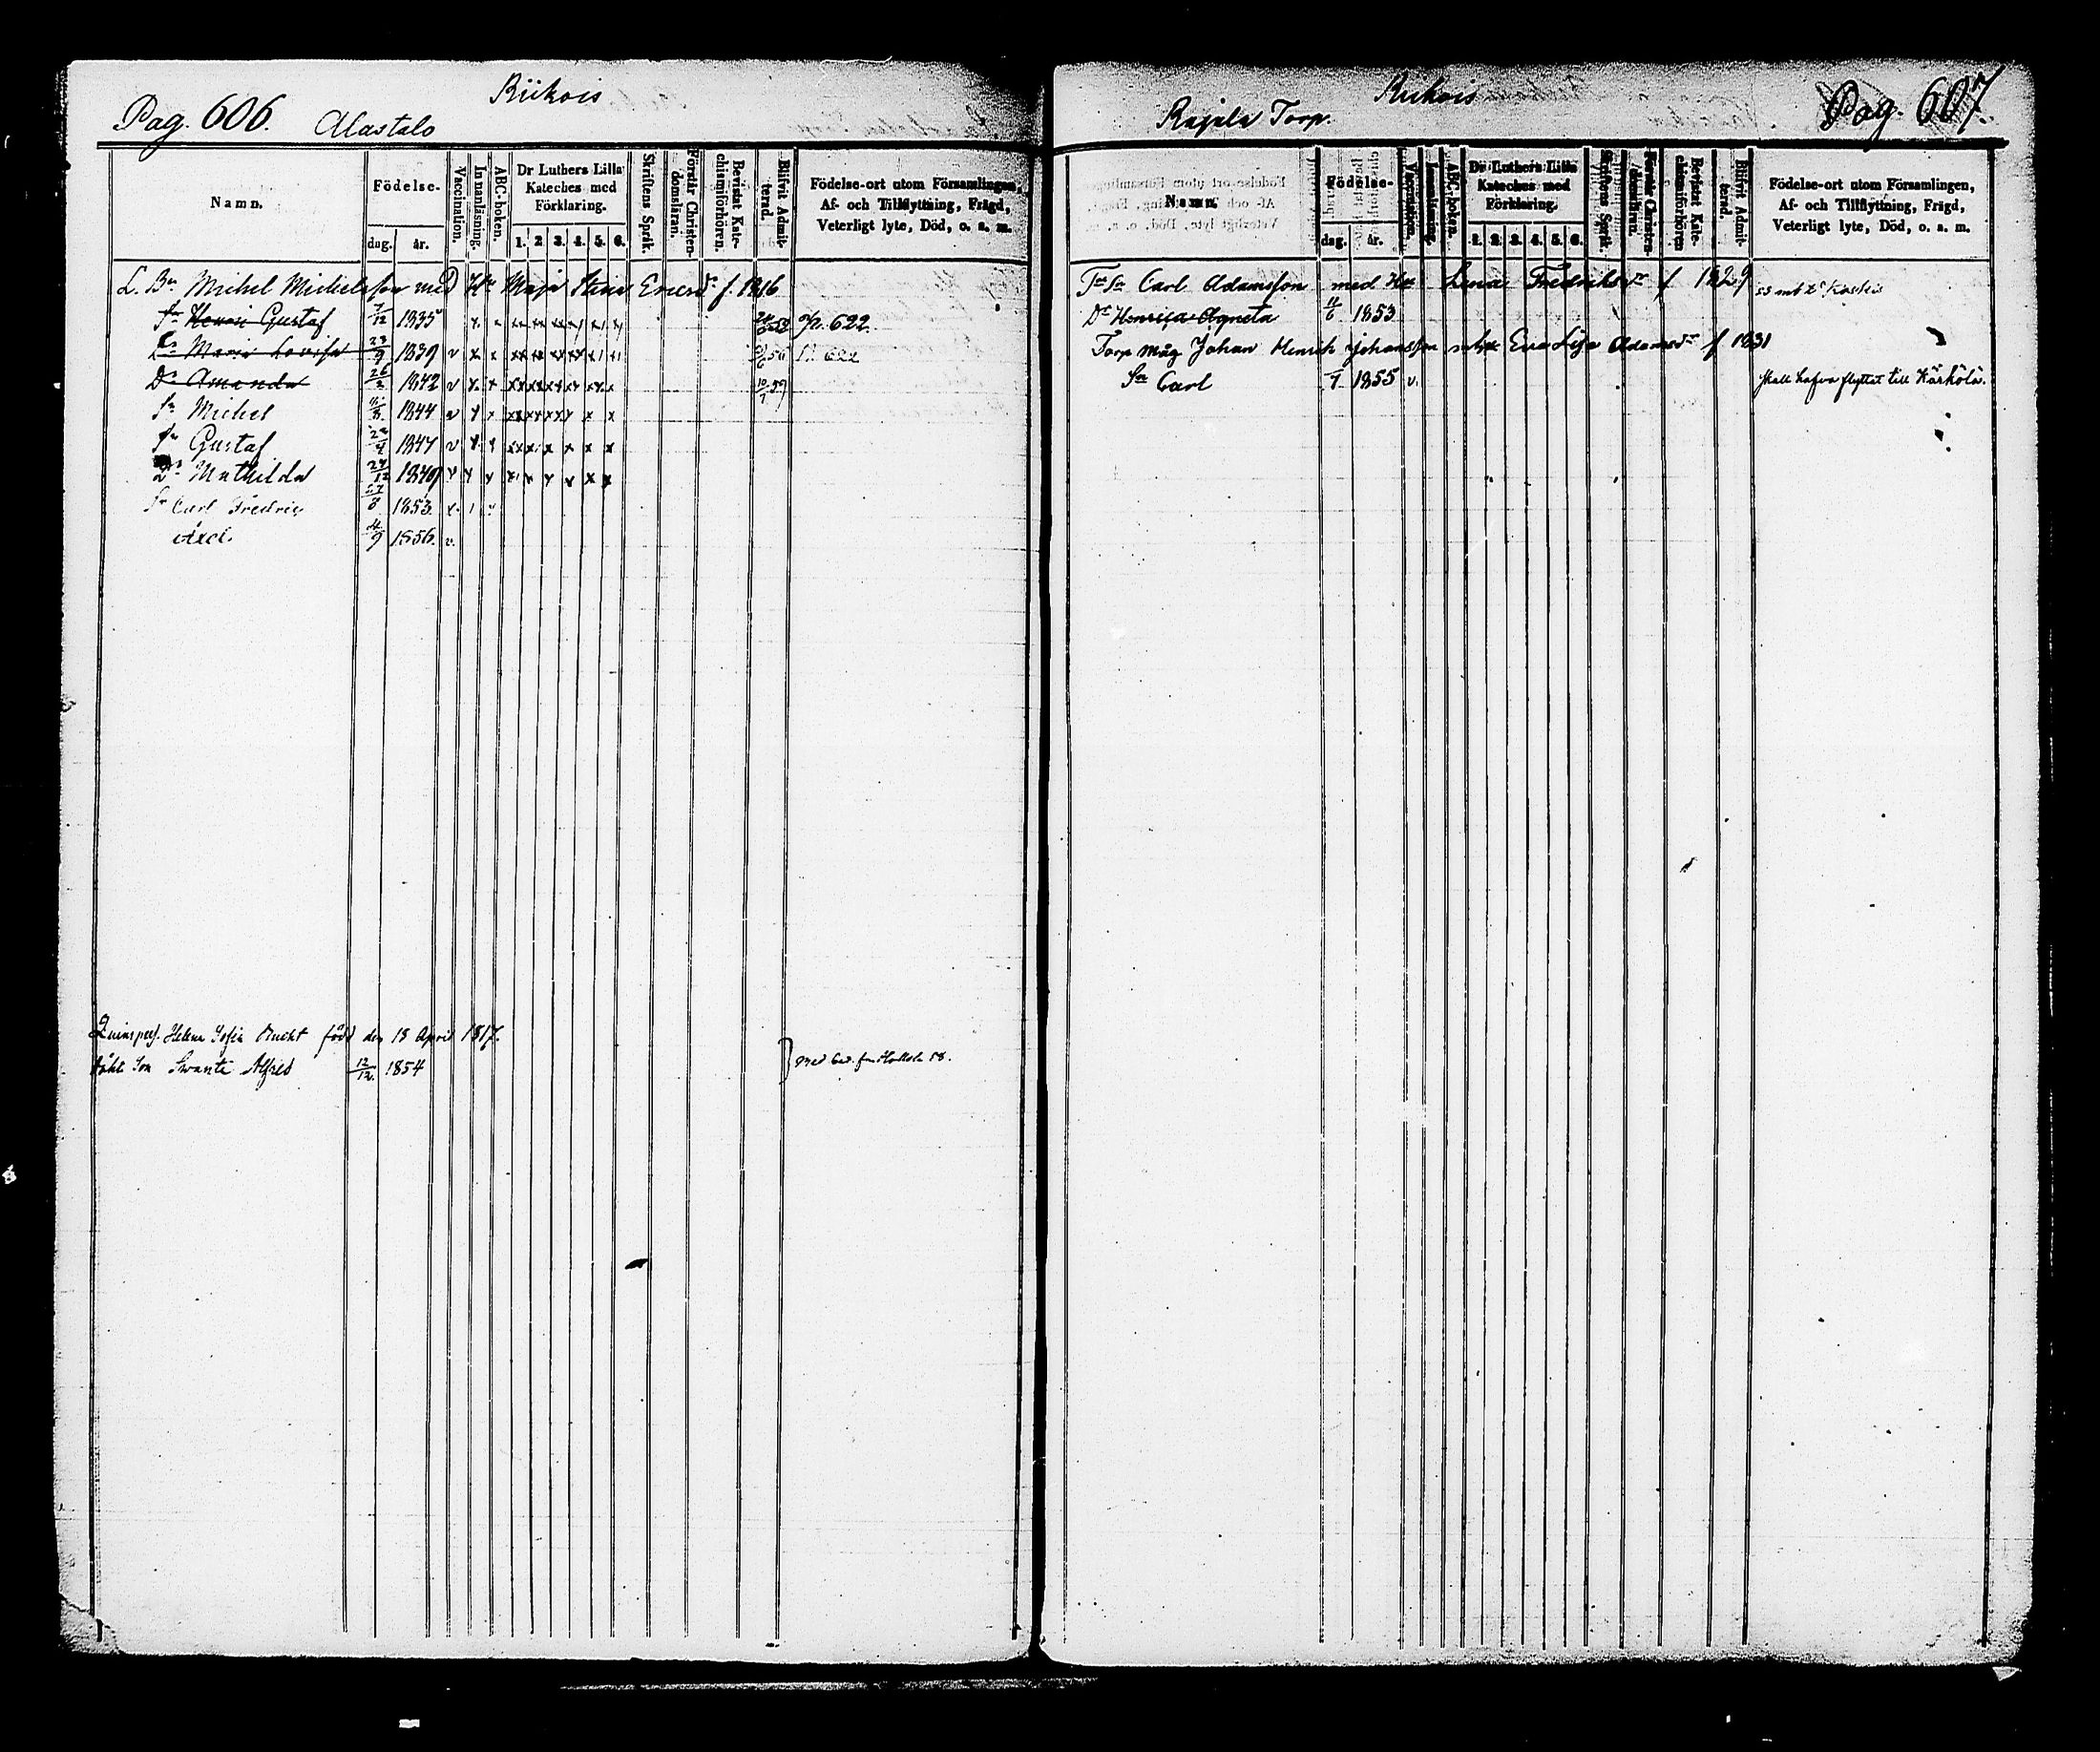 Pag. 606. Alastalo Riikois
Namn.
Födelse-
dag. år.
Vaccination.
Innanläsning.
ABC-boken.
Dr Luthers Lilla Kateches med Förklaring.
1. 2 3. 4. 5. 6.
Skriftens Språk.
Förstår Christendomsläran.
Bevistat Katechismiförhören.
Blifvit Admitterad.
Födelse-ort utom Församlingen, Af- och Tillflyttning, Frägd, Veterligt lyte, Död, o. s. m.
L. Bn Michel Michelsson med Hu Maja Stina Ericsdr f. 1816
Sn Gustaf 7/12 1835 x x p. 622.
Dr Maria Lovisa 23/9 1839 v x x 56 p. 622
Dr Amanda 26/2 1842 v x x 10/7 59
Sn Michel 1844 v x x
Sn Gustaf 1847 v x x
Dr Mathilda 24/12 1849 v x x
Sn Carl Fredric 8 1853
Axel. 9 1856. v.
Helena Sofia född den 13 April 1817.
Son Svante Alfred 12/12. 1854 med bev. fr. Hollola 58.
Riikois
Rajala Torp. Pag. 607.
Namn.
Födelse-
dag. år.
Vaccination.
Innanläsning.
ABC-boken.
Dr Luthers Lilla Kateches med Förklaring.
1. 2. 3. 4. 5. 6.
Skriftens Språk.
Förstår Christendomsläran.
Bevistat Katechismiförhören
Blifvit Admitterad.
Födelse-ort utom Församlingen, Af- och Tillflyttning, Frägd, Veterligt lyte, Död, o. s. m.
Carl Adamsson med Hu Lena Fredriksdr f 1829
Dr Henrica Agneta 11/6 1853
Torp måg Johan Henrich Johansson Eva Lisa Adamsdr f 1831
Sn Carl 1855 v. skall hafva flyttat till Kärkölä.